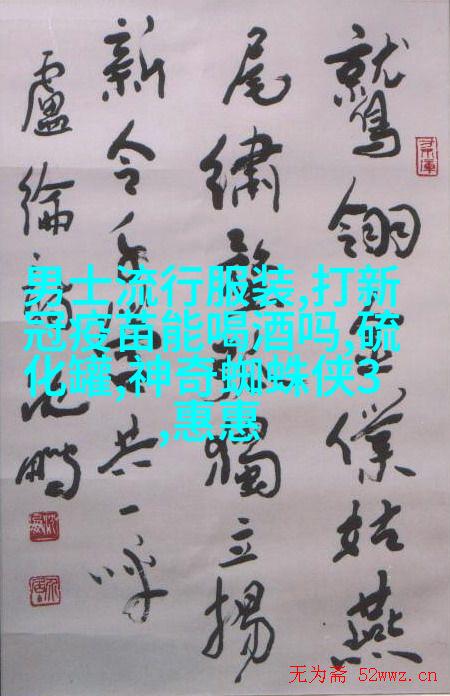 鷲翎金僕姑燕
尾繡獨立揚
新令千共一呼
盧綸詩沈鵬
男士流行服装,打新
冠疫苗能喝酒吗,硫
化罐,神奇蜘蛛侠3
,惠惠
无为斋 52wwz.cn